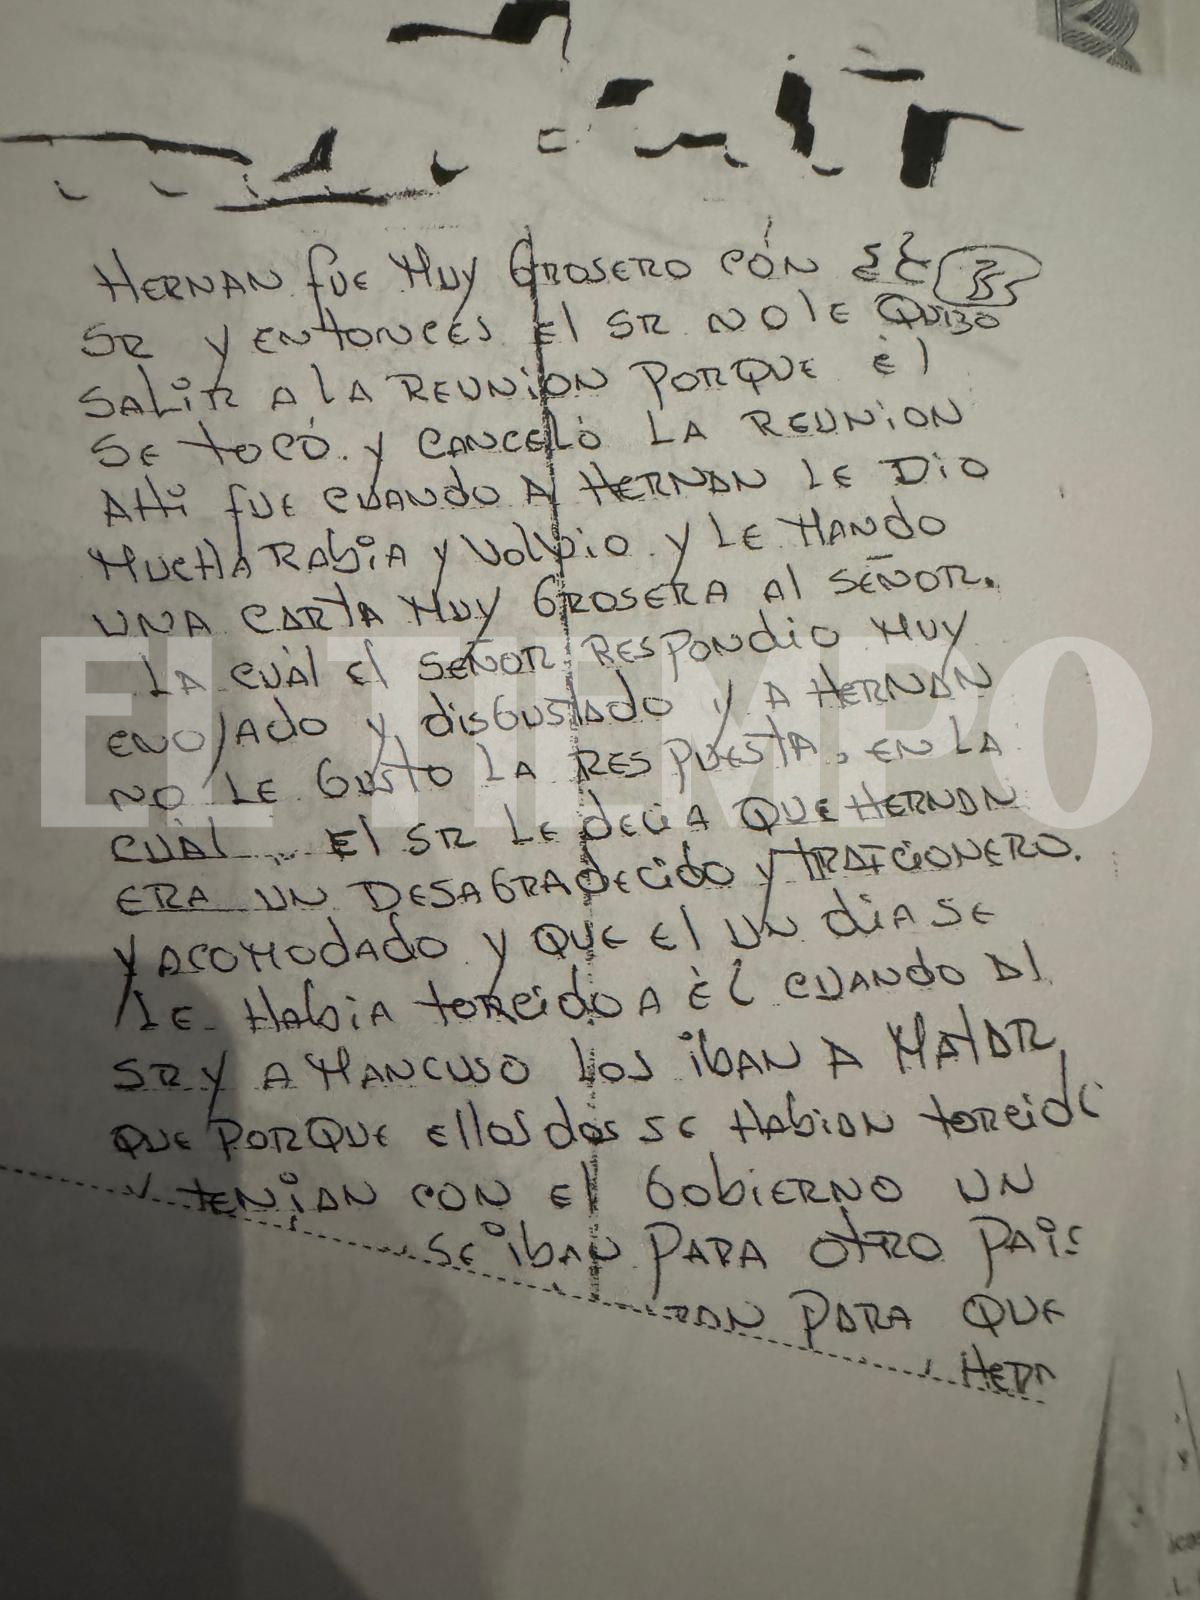 HERNAN fUE MUY GROSERO CON EL
35
SR Y ENtONCES El SR NO lE QUIZO
SALIR A lA REUNION PORQUE él
SE tOCÓ. y CANCELÓ LA REUNION
AHi fUE CUANdO A HERNAN LE DIO
MUCHA RAbiA y VOlVIO y LE MANDO
UNA CARtA MUY GROSERA Al SEÑOR.
LA CUAl El SEÑOR RESPONdiO MUY
ENOJADO y disGUStADO y A HERNAN
NO LE GUStO LA RESPUESTA, EN LA
CUAl El SR LE dECiA QUE HERNAN
ERA UN DESAGRADECidO y TRAICIONERO.
y ACOMOdAdO y QUE El UN díA SE
LE HAbiA tORCidO A ÉL CUANDO Al
SR y A MANCUSO LOS iBAN A MAtAR
QUE PORQUE EllOS dOS SE HAbiAN tORCidO
tENiAN CON El GObiERNO UN
SE iBAN PARA OtRO PAiS
RAN PARA QUE
EL TIEMPO